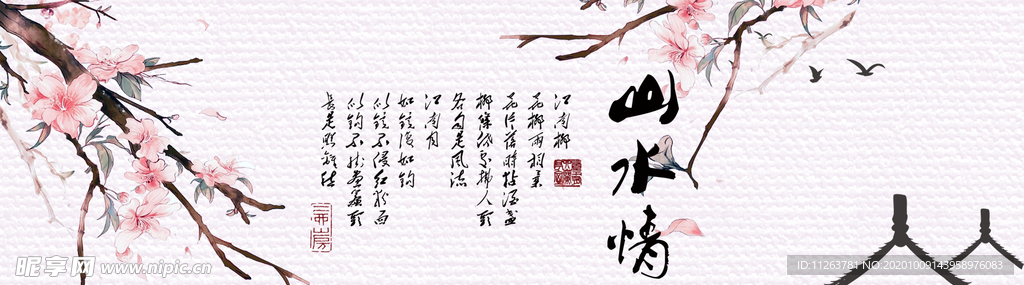 山水情
江南柳
花柳两相柔
花片落时黏酒盏
柳条低处拂人头
各自是风流
江南月
如镜复如钩
似镜不侵红粉面
似钩不挂画帘头
长是照离愁
昵享网 www.nipic.cn
ID:11263781 NO:20201009143958976083